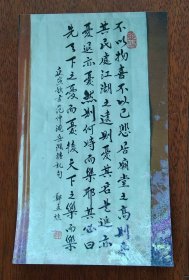 不以物喜不以己悲居廟堂之高則憂
其民處江湖之遠則憂其君是進亦
憂退亦憂然則何時而樂耶其必曰
先天下之憂而憂後天下之樂而樂
書范仲淹岳陽樓記句